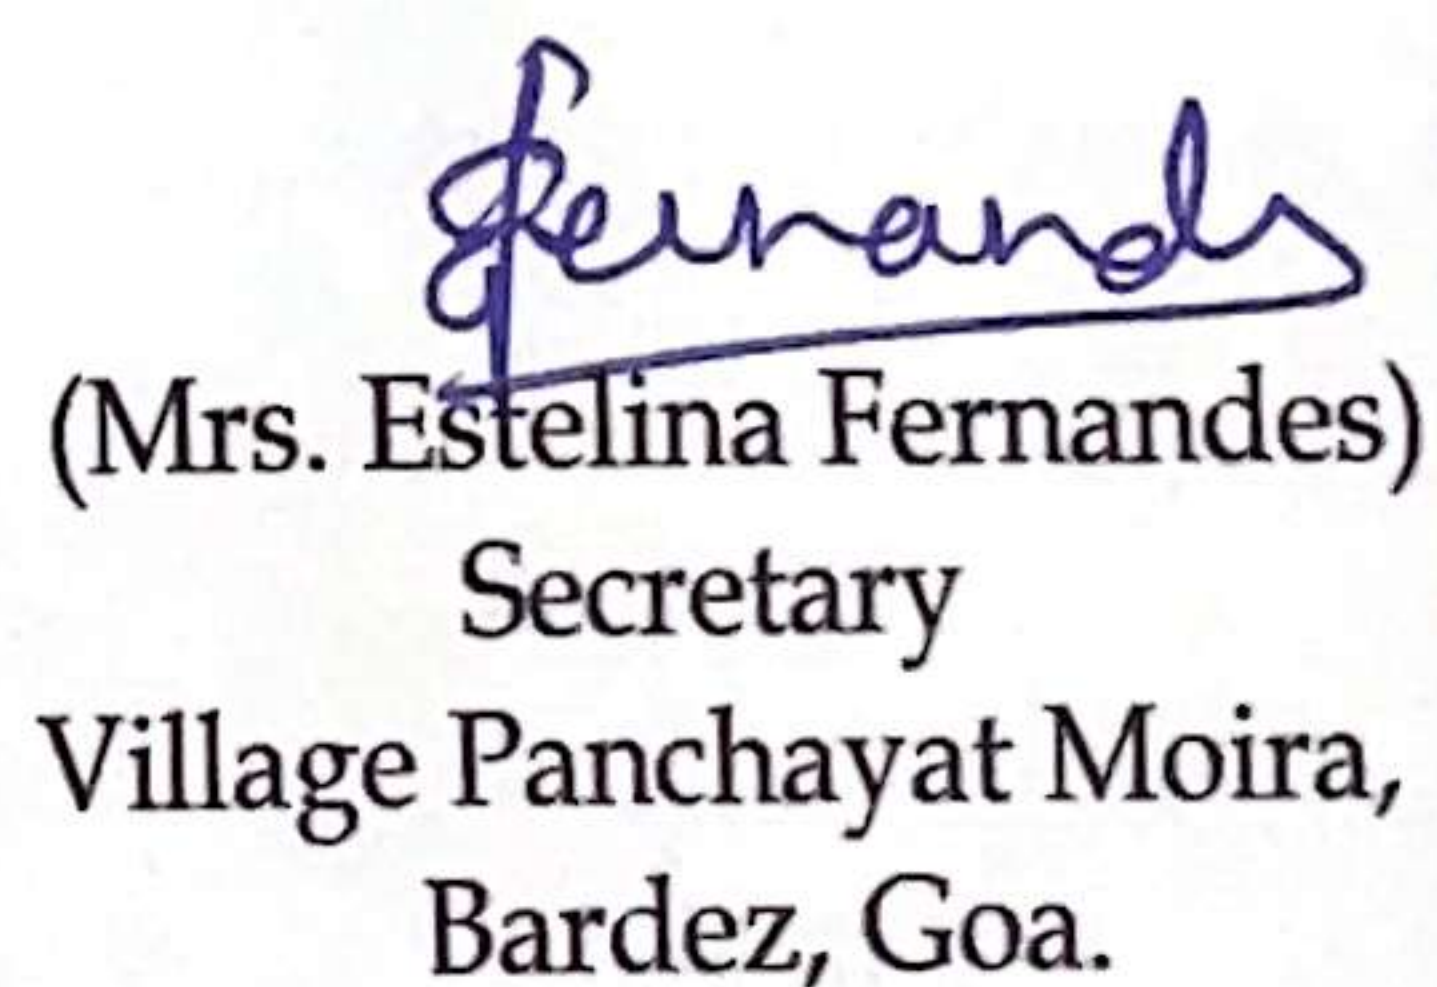 Fernands
(Mrs. Estelina Fernandes)
Secretary
Village Panchayat Moira,
Bardez, Goa.